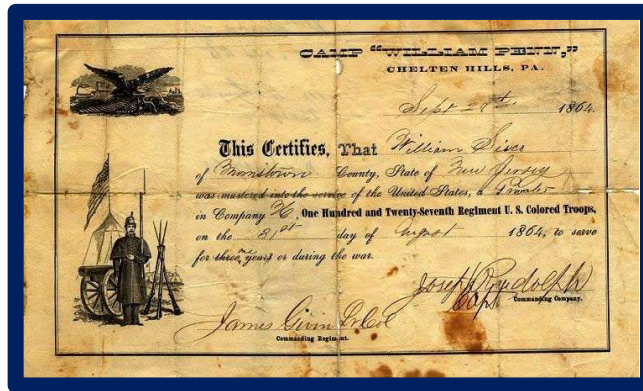 CAMP "WILLIAM PENN,"
CHELTEN HILLS, PA.
Sept 28th 1864.
This Certifies, That William
of County, State of New Jersey
was mustered into the service of the United States, a Private
in Company , One Hundred and Twenty-Seventh Regiment U. S. Colored Troops,
on the 31st day of August 1864, to serve
for three years or during the war.
Joseph Rudolph
Capt Commanding Company.
James Givin Lt Col
Commanding Regiment.